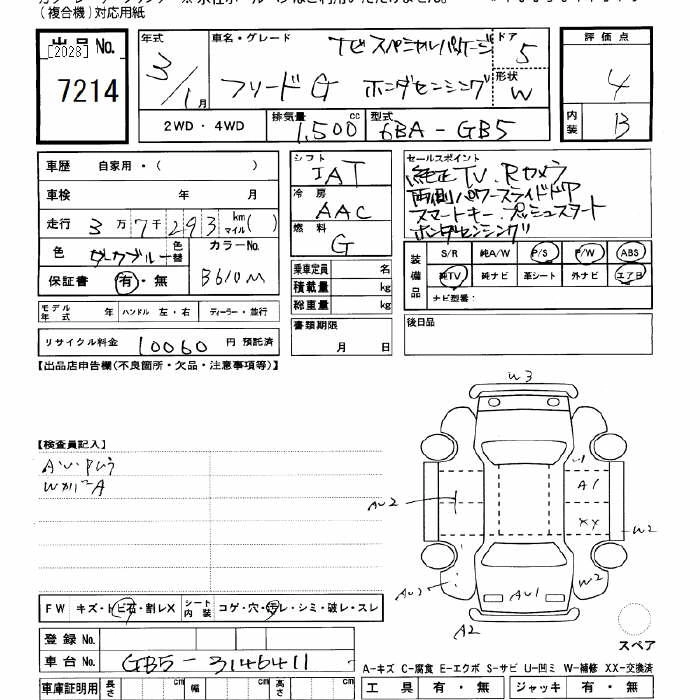 (複合機)対応用紙
出品 No. [2028] 7214
年式 3/1月
車名・グレード ナビスペシャルパッケージ
フリードG ホンダセンシング
ドア 5
形状 W
評価点 4
内装 B
2WD・4WD 排気量 1,500 cc 型式 6BA-GB5
車歴 自家用・( )
車検 年 月
走行 3万7千293 km マイル( )
色 ダークブルー 色替 カラーNo. B610M
保証書 有・無
モデル年式 年 ハンドル 左・右 ディーラー・並行
リサイクル料金 10060 円 預託済
シフト IAT
冷房 AAC
燃料 G
乗車定員 名
積載量 kg
総重量 kg
書類期限 月 日
セールスポイント
純正TV、Rカメラ
両側パワースライドドア
スマートキー、プッシュスタート
ホンダセンシング
装備品 S/R 純A/W P/S P/W ABS
純TV 純ナビ 革シート 外ナビ エアB
ナビ型番:
後日品
【出品店申告欄(不良個所・欠品・注意事項等)】
【検査員記入】
W3
A1
XX
AU2
W2
AU2
W2
AU1
A2
スペア
FW キズ・トビ石・割レX シート内装 コゲ・穴・汚レ・シミ・破レ・スレ
登録 No.
車台 No. GB5-3146411
車庫証明用 長さ cm 幅 cm 高さ cm
A-キズ C-腐食 E-エクボ S-サビ U-凹ミ W-補修 XX-交換済
工具 有・無 ジャッキ 有・無